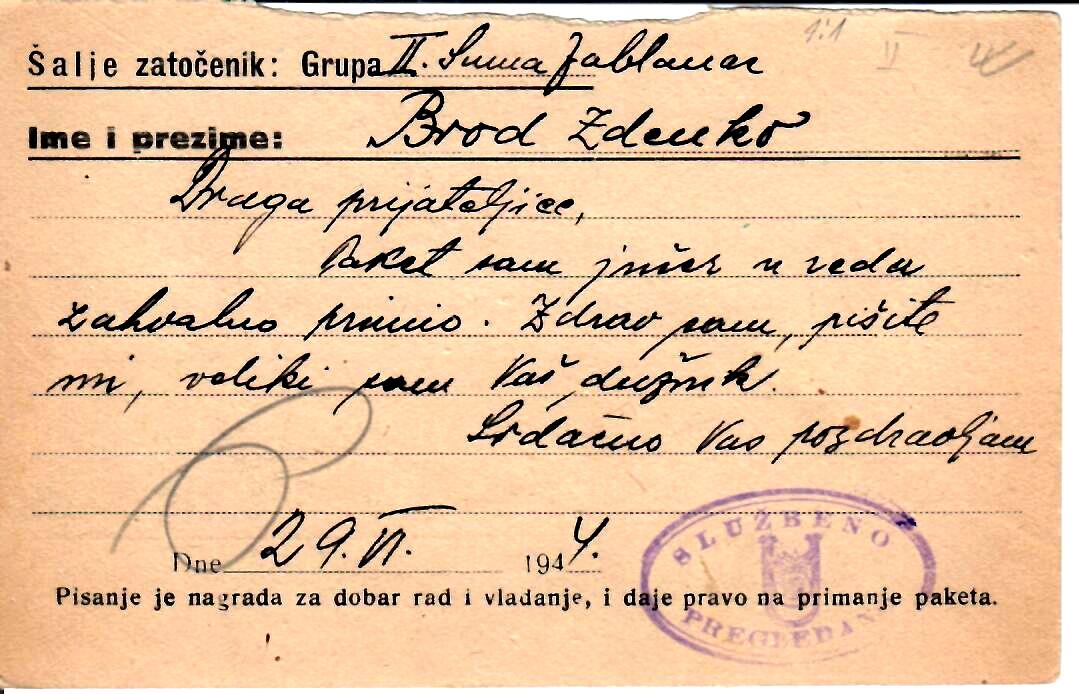 Šalje zatočenik: Grupa II. Šuma Jablanac
Ime i prezime: Brod Zdenko
Draga prijateljice,
Paket sam jučer u redu
zahvalno primio. Zdrav sam, pišite
mi, veliki sam Vaš dužnik.
Srdačno Vas pozdravljam
Dne 29. VI. 1944.
Pisanje je nagrada za dobar rad i vladanje, i daje pravo na primanje paketa.
SLUŽBENO
PREGLEDANO
II